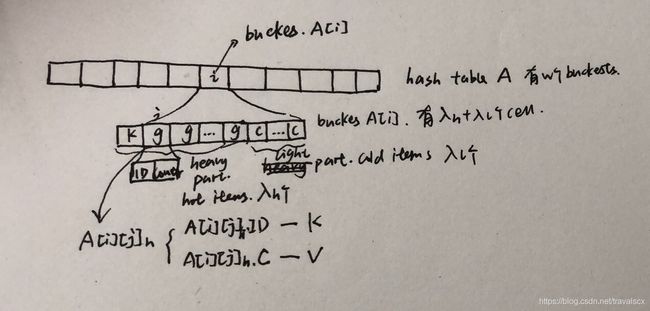 buckes. A[i]
i
hash table A 有w个buckests.
j
k g g ... g c ... c
buckes A[i]. 有λh+λl个cell.
ID
heavy part.
hot items. λh个
light part. cold items λl个
A[i][j]h
A[i][j]h.ID — K
A[i][j]h.C — V
https://blog.csdn.net/travalscx